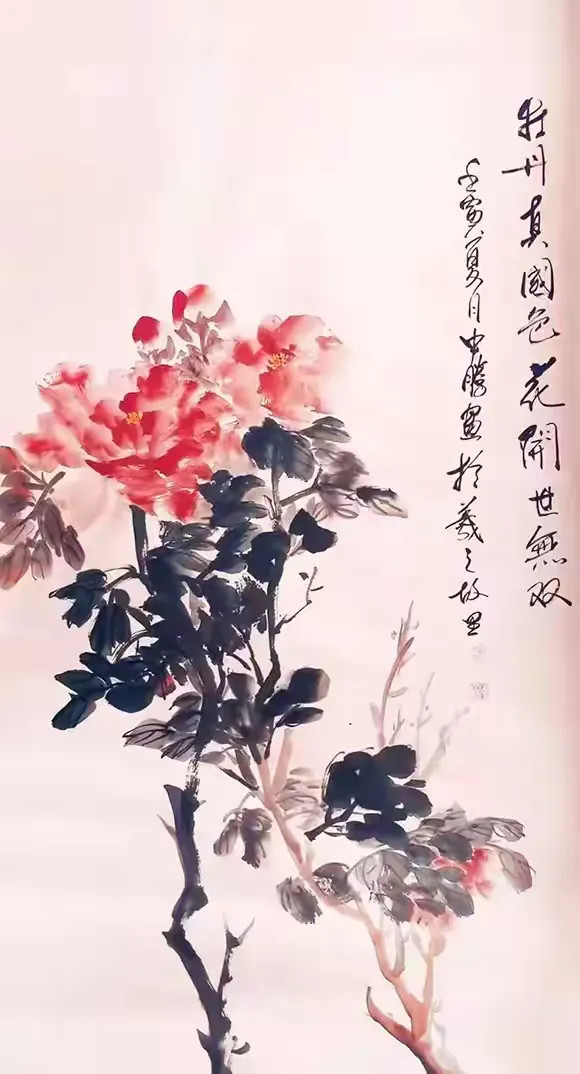 牡丹真國色花開世無双
壬寅夏月中勝畫於羲之故里